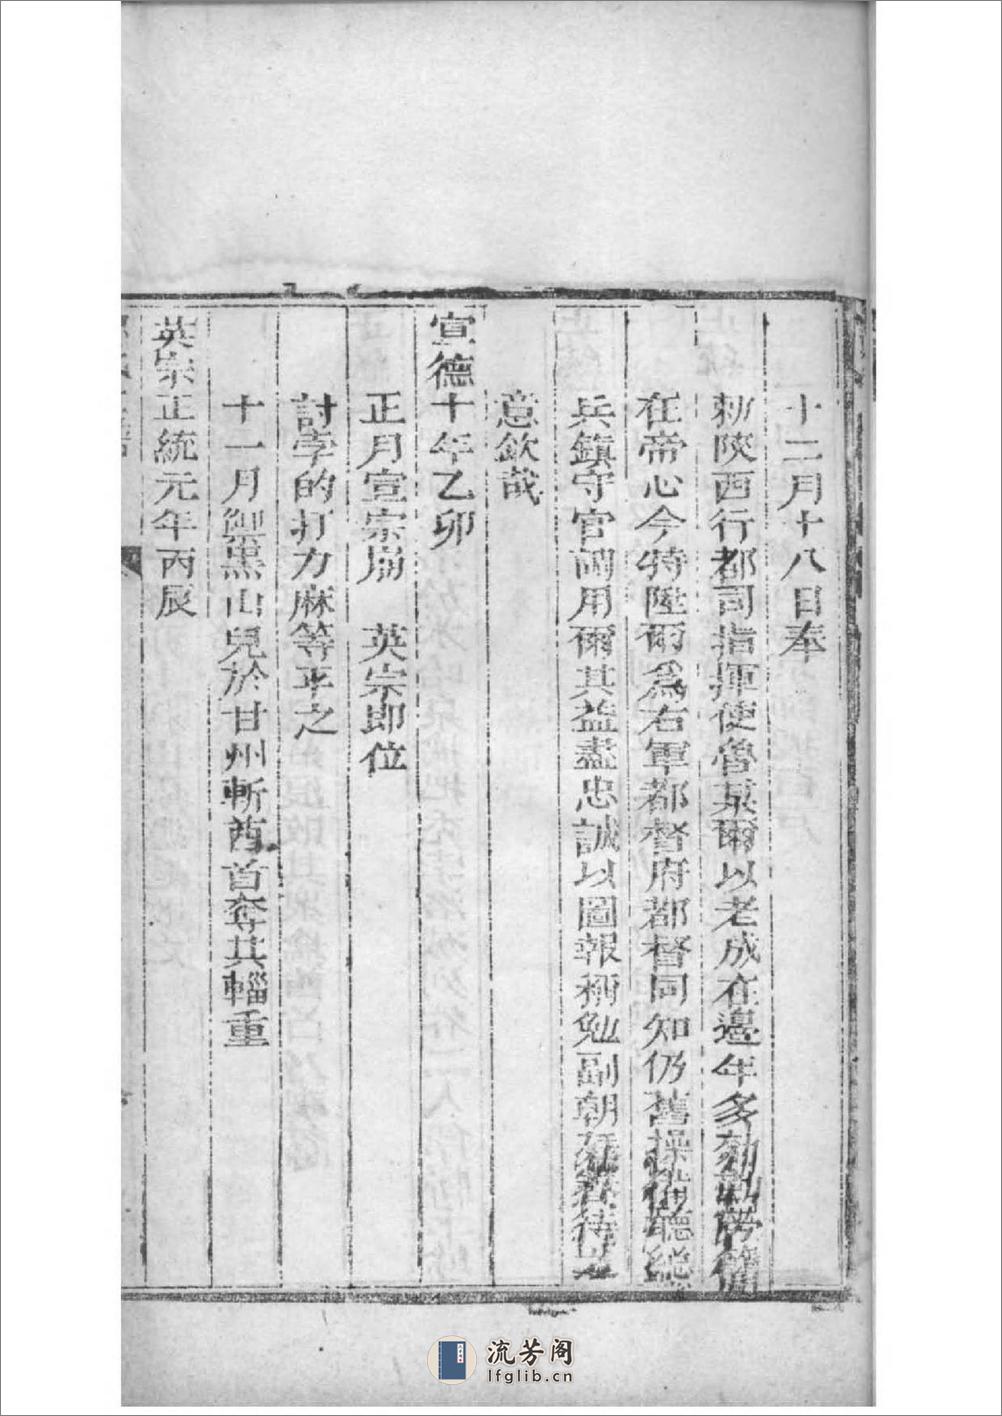 十二月十八日奉
勑陝西行都司指揮使魯某爾以老成在邊年多効勤勞簡
在帝心今特陞爾爲右軍都督府都督同知仍舊操備聽總
兵鎮守官調用爾其益盡忠誠以圖報稱勉副朝廷眷待之
意欽哉
宣德十年乙卯
正月宣宗崩 英宗即位
討孛的打力麻等平之
十一月禦黑山兒於甘州斬酋首奪其輜重
英宗正統元年丙辰
流芳阁
lfglib.cn